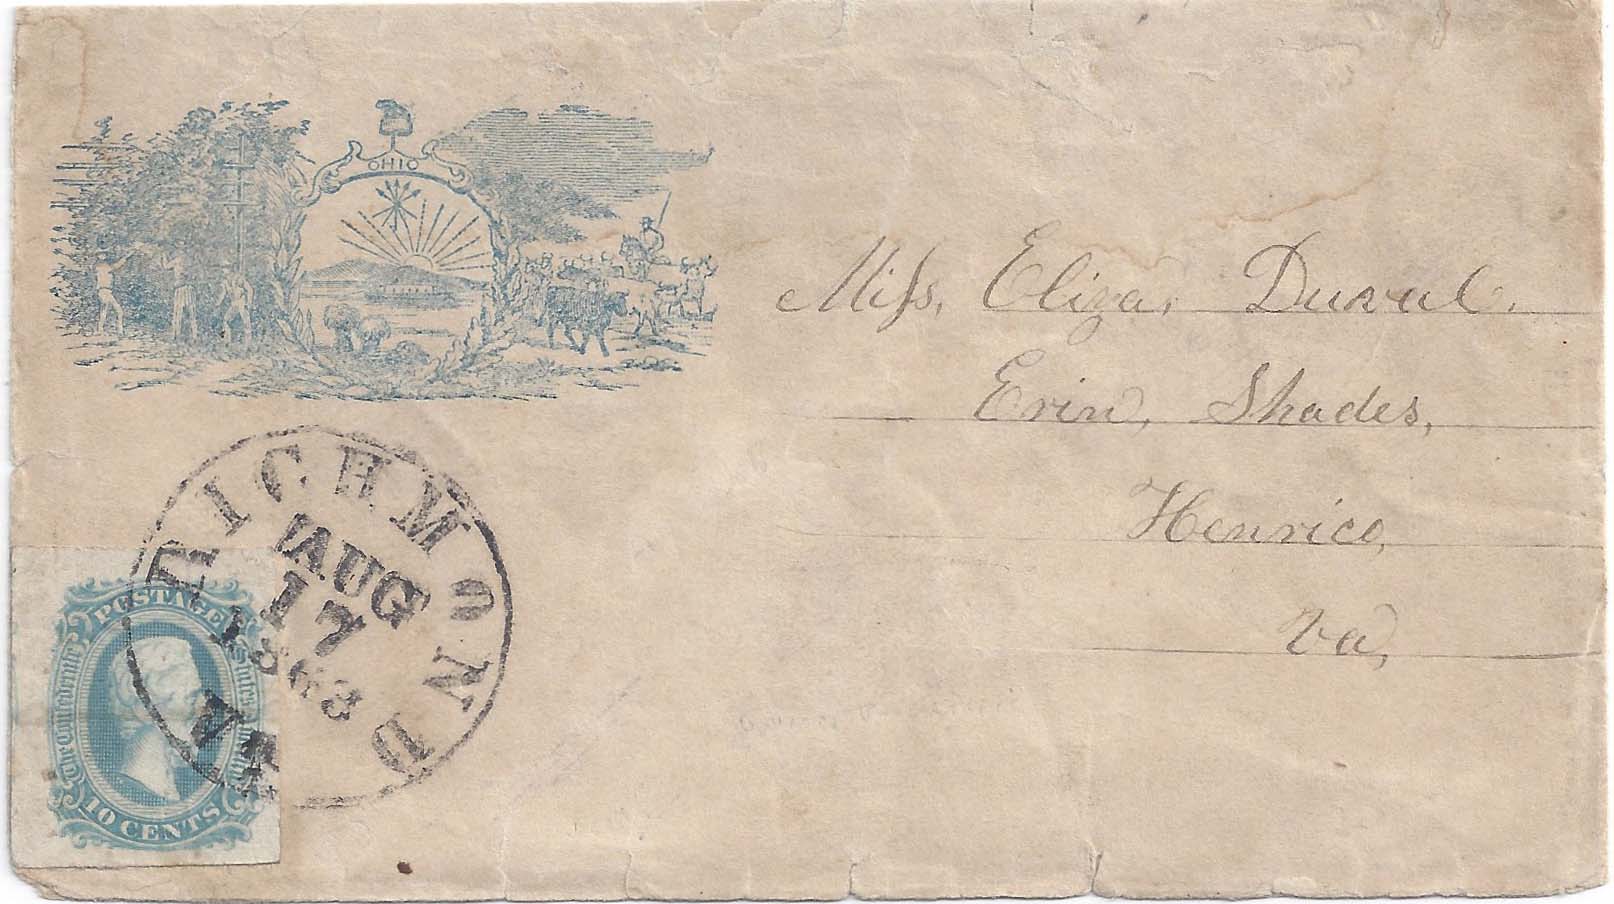 OHIO
Miss. Eliza. Duval.
Erin, Shades,
Henrico,
Va,
RICHMOND VA.
AUG
17
1863
POSTAGE
The Confederate States of America
10 CENTS